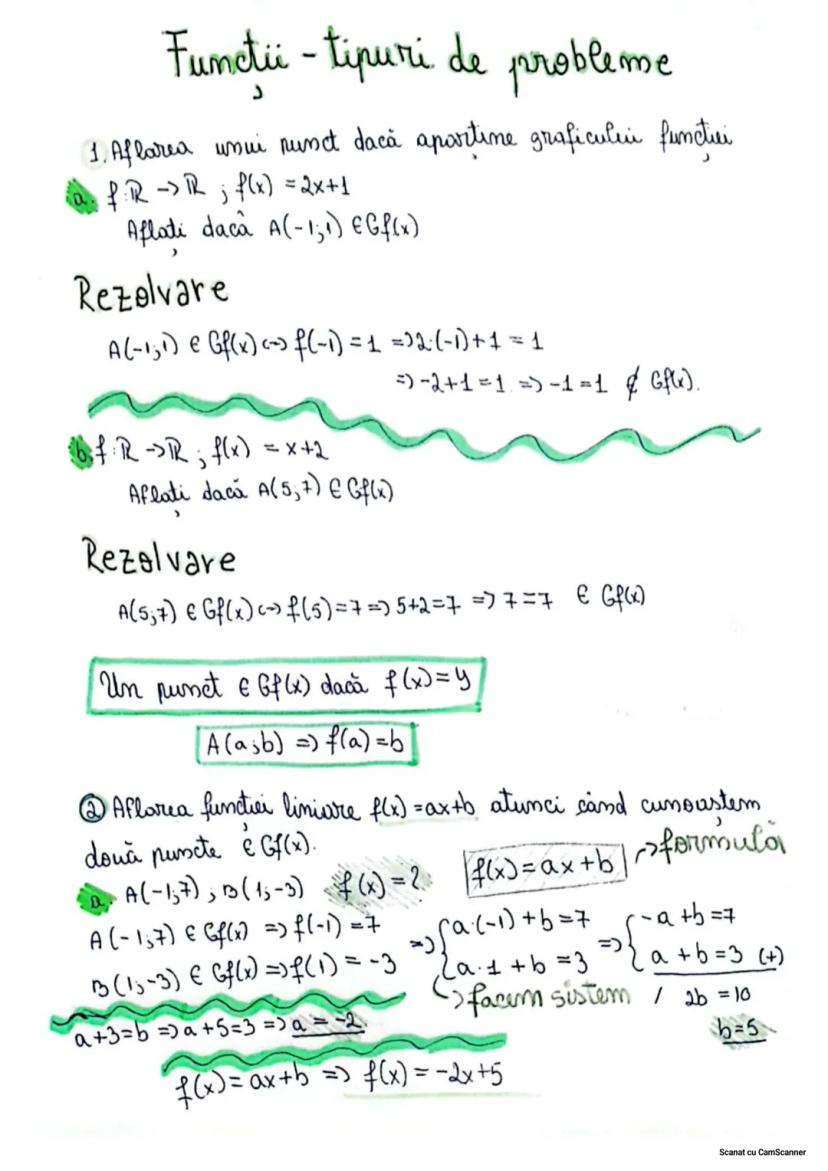 Funcții - tipuri de probleme
1. Aflarea unui punct dacă aparține graficului funcției
a. f:ℝ → ℝ ; f(x) = 2x+1
Aflați dacă A(-1;1) ∈ Gf(x)
Rezolvare
A(-1;1) ∈ Gf(x) <=> f(-1) = 1 => 2·(-1)+1 = 1
=> -2+1 = 1 => -1 = 1 ∉ Gf(x).
b. f:ℝ → ℝ ; f(x) = x+2
Aflați dacă A(5;7) ∈ Gf(x)
Rezolvare
A(5;7) ∈ Gf(x) <=> f(5) = 7 => 5+2=7 => 7=7 ∈ Gf(x)
Un punct ∈ Gf(x) dacă f(x)=y
A(a;b) => f(a)=b
② Aflarea funcției liniare f(x)=ax+b atunci când cunoaștem
două puncte ∈ Gf(x).
f(x)=ax+b → formulă
a. A(-1;7) ; B(1;-3) f(x)=?
A(-1;7) ∈ Gf(x) => f(-1)=7 => { a·(-1)+b=7 => { -a+b=7
B(1;-3) ∈ Gf(x) => f(1) = -3 a·1+b=3 a+b=3 (+)
→ facem sistem / 2b=10
a+3=b => a+5=3 => a=-2 b=5
f(x)=ax+b => f(x)=-2x+5
Scanat cu CamScanner